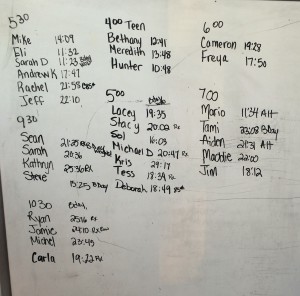 530
Mike 14:09
Eli 11:32
Sarah D 11:23
Andrew K 17:47
Rachel 21:58
Jeff 22:10
930
Sean
Sarah 20:36
Kathryn 25:36 RX
Steve 15:25 Bday
1030
Ryan 25:16 Rx
Jamie
Michel 23:45
Carla 19:22 Rx
400 Teen
Bethany 12:41
Meredith 13:48
Hunter 10:48
500
Lacey 19:35
Stacy 20:02 Rx
Sol 16:03
Michael D 20:47 Rx
Kris 29:17
Tess 18:34 Rx
Deborah 18:49
600
Cameron 19:28
Freya 17:50
700
Mario 11:34 Alt
Tami 23:08 Bday
Aidan 21:31 Alt
Maddie 22:00
Jim 18:12